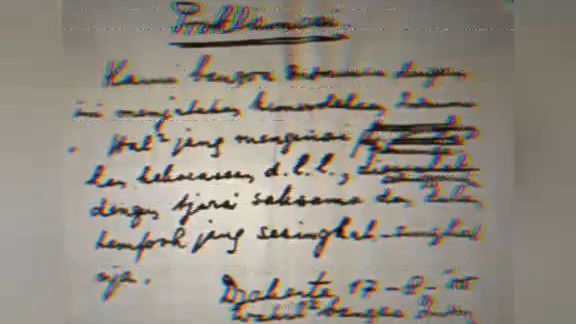 Proklamasi
Kami bangsa Indonesia dengan
ini menjatakan kemerdekaan
Hal² jang mengenai
kan kekoeasaan, d.l.l.,
dengan tjara saksama dan dalam
tempoh jang sesingkat-singkat
nja.
Djakarta 17-8-'05
Wakil² bangsa Indon